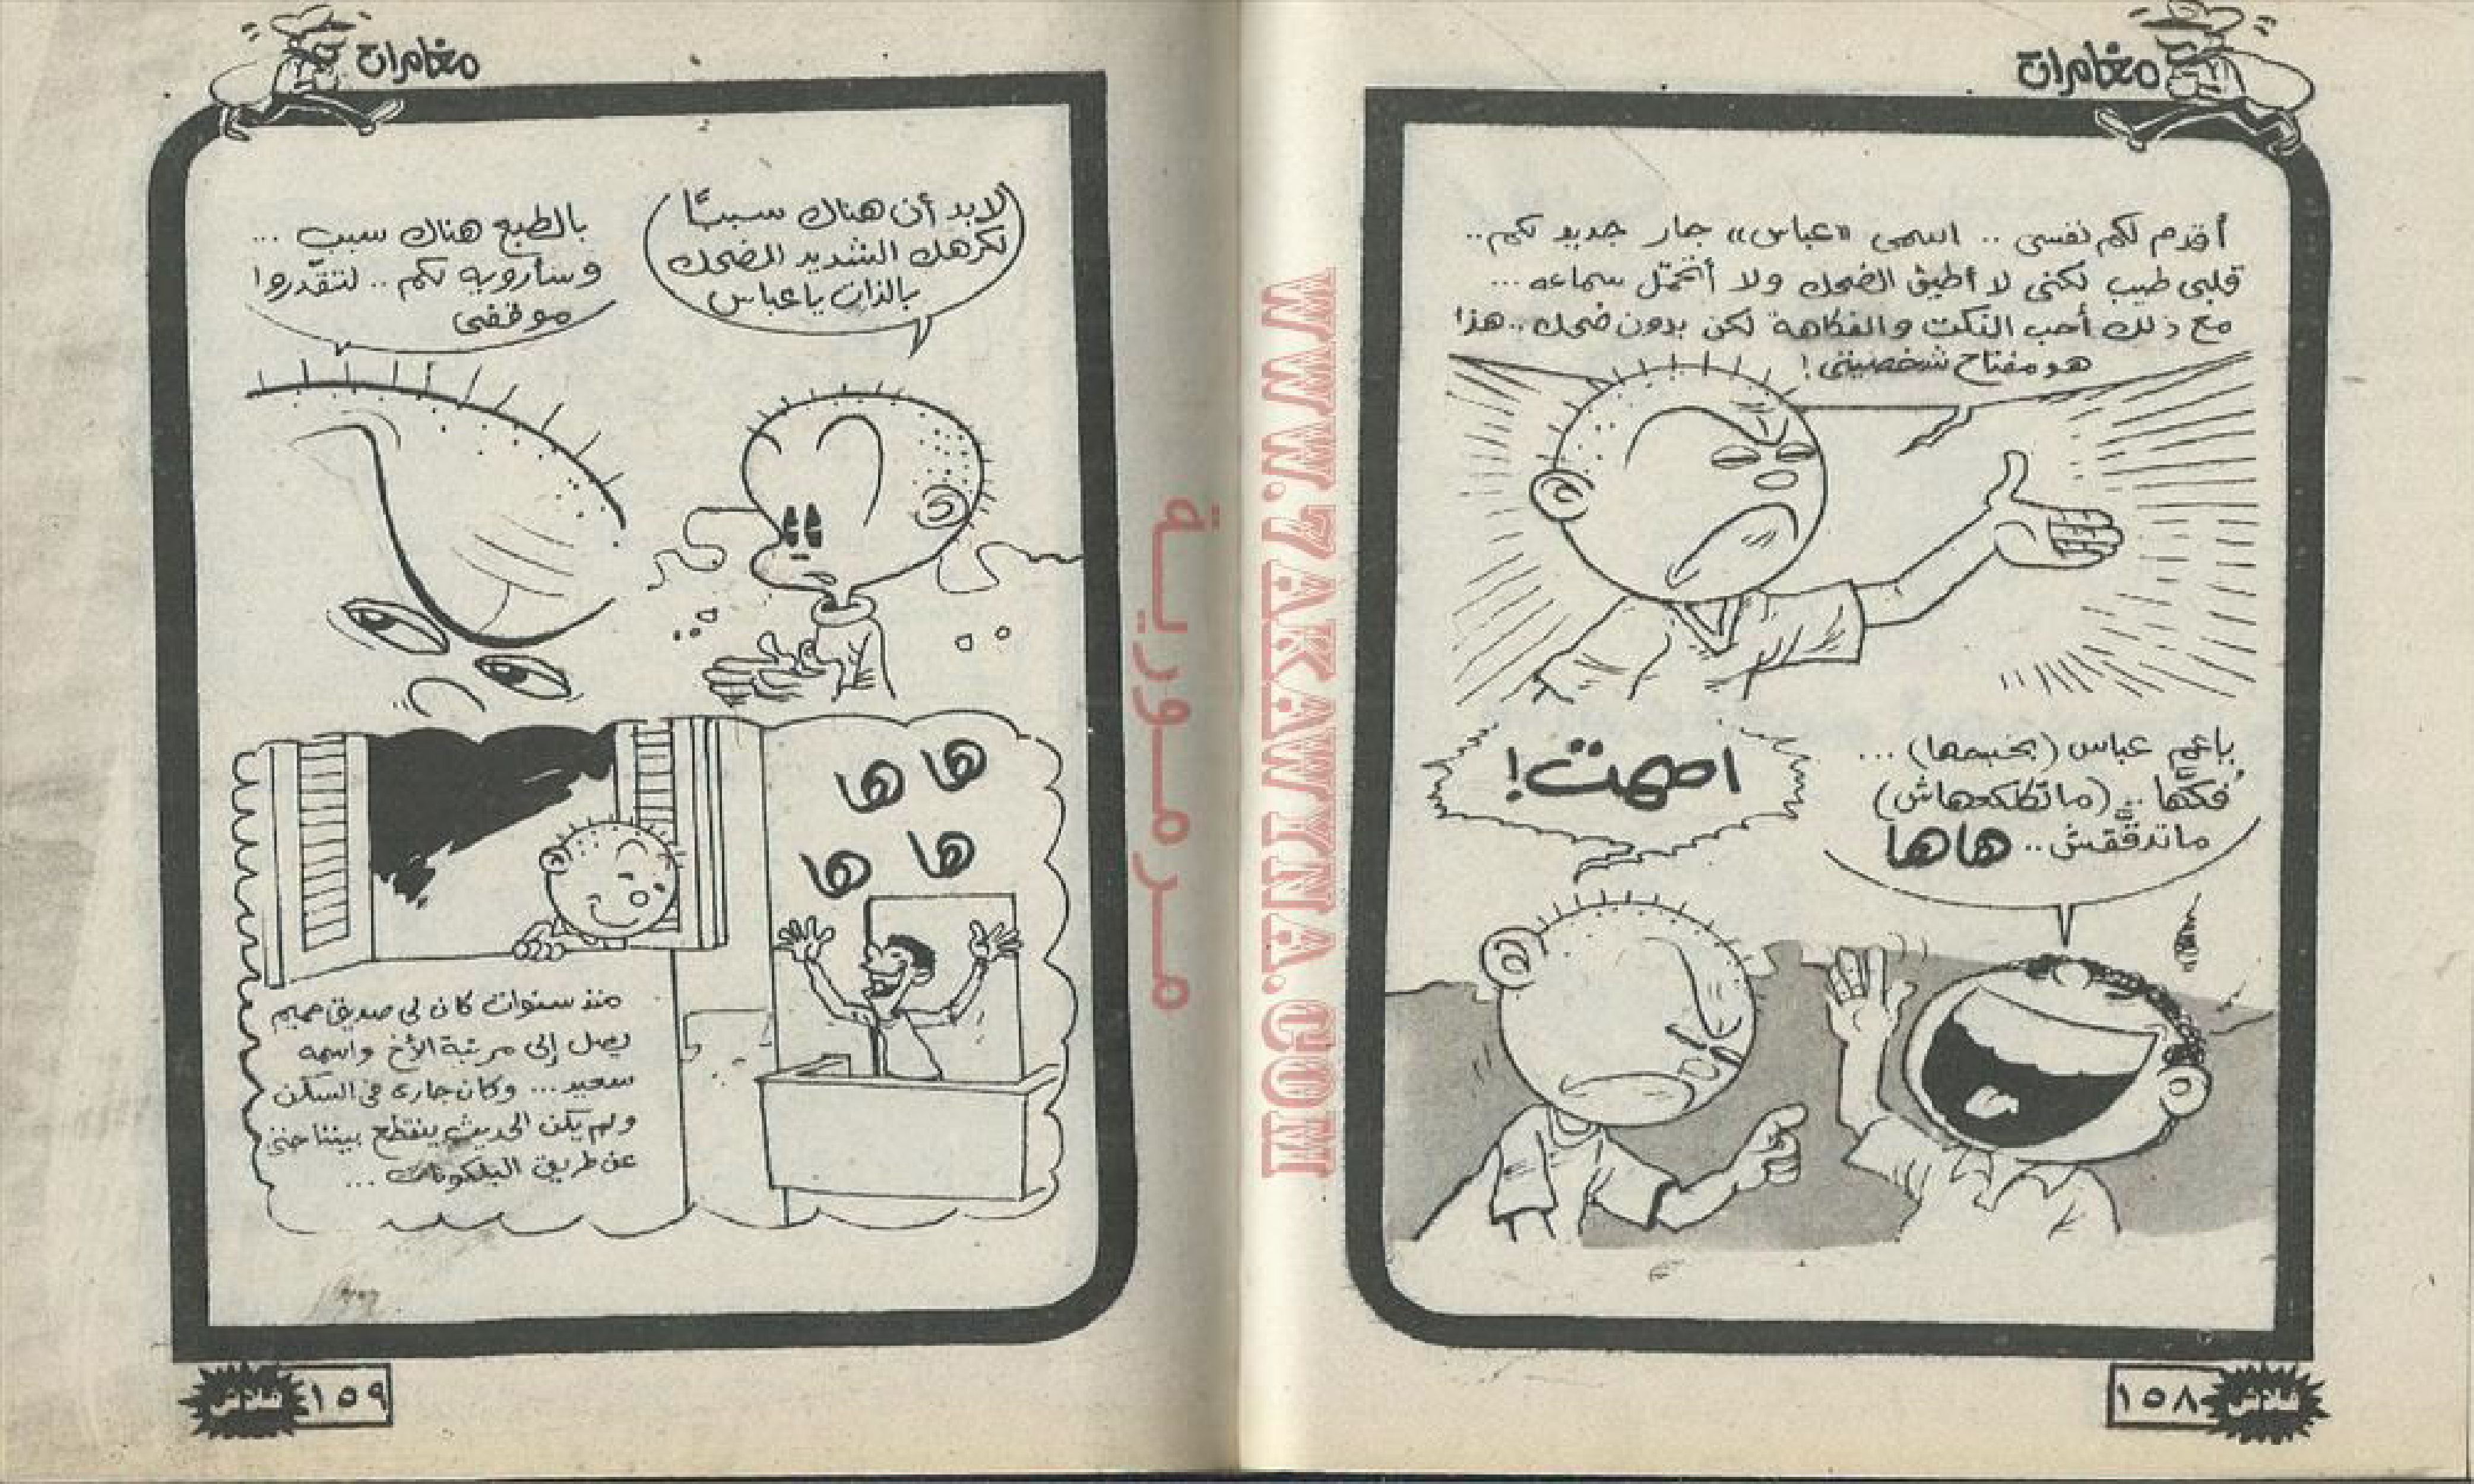 مغامرات
أقدم لكم نفسى .. اسمى «عباس» جار جديد لكم..
قلبى طيب لكنى لا أطيق الضحك ولا أتحمّل سماعه ...
مع ذلك أحب النكت والفكاهة لكن بدون ضحك .. هذا
هو مفتاح شخصيتى!
ياعم عباس (بخسمها) ...
فُكّها .. (ماتكلكعهاش)
ماتدقّقش .. هاها
اصمت!
١٥٨
فلاش
مغامرات
لابد أن هناك سببًا
لكرهك الشديد للضحك
بالذات ياعباس
بالطبع هناك سبب ...
وسأرويه لكم .. لتقدروا
موقفى
ها ها
ها ها
منذ سنوات كان لى صديق حميم
يصل إلى مرتبة الأخ واسمه
سعيد ... وكان جارى فى السكن
ولم يكن الحديث ينقطع بيننا حتى
عن طريق البلكونات ...
١٥٩
فلاش
WWW.7AKAWATNA.COM
مرمورية